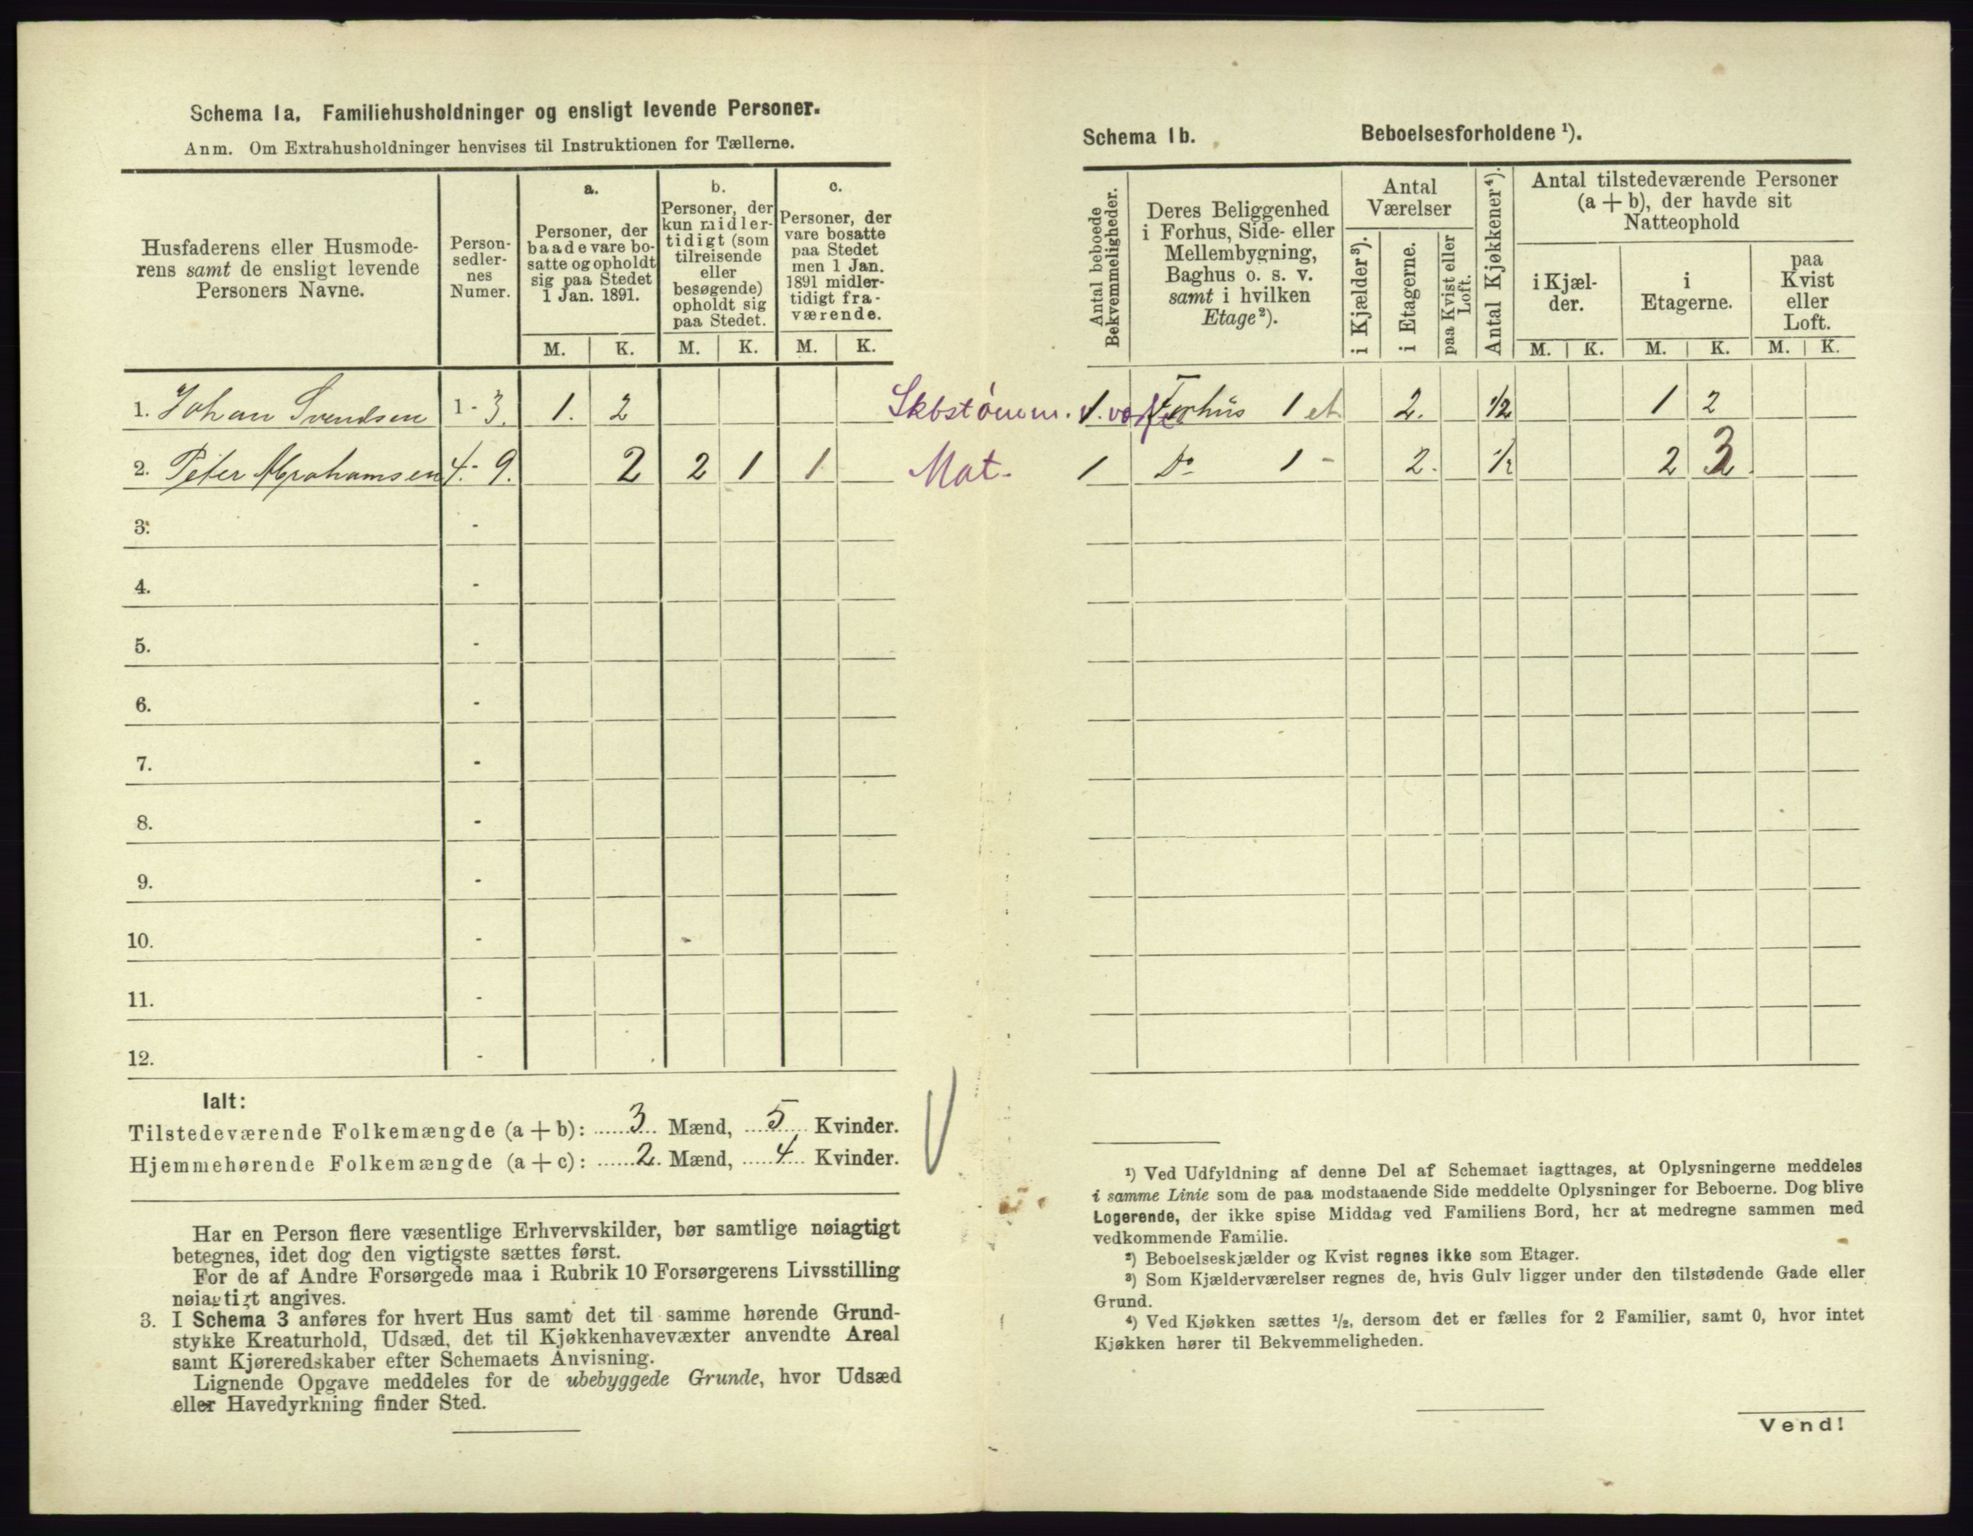 Schema 1a. Familiehusholdninger og ensligt levende Personer.
Anm. Om Extrahusholdninger henvises til Instruktionen for Tællerne.
Husfaderens eller Husmode-
rens samt de ensligt levende
Personers Navne.
Person-
sedler-
nes
Numer.
a.
Personer, der
baade vare bo-
satte og opholdt
sig paa Stedet
1 Jan. 1891.
b.
Personer, der
kun midler-
tidigt (som
tilreisende
eller
besøgende)
opholdt sig
paa Stedet.
c.
Personer, der
vare bosatte
paa Stedet
men 1 Jan.
1891 midler-
tidigt fra-
værende.
M. K. M. K. M. K.
1. Johan Svendsen 1 - 3. 1. 2
2. Peter Abrahamsen 4 - 9. 2 2 1 1
3. -
4. -
5. -
6. -
7. -
8. -
9. -
10. -
11. -
12. -
Ialt:
Tilstedeværende Folkemængde (a + b): 3 Mænd, 5 Kvinder.
Hjemmehørende Folkemængde (a + c): 2 Mænd, 4 Kvinder.
Har en Person flere væsentlige Erhvervskilder, bør samtlige nøiagtigt
betegnes, idet dog den vigtigste sættes først.
For de af Andre Forsørgede maa i Rubrik 10 Forsørgerens Livsstilling
nøiagtigt angives.
3. I Schema 3 anføres for hvert Hus samt det til samme hørende Grund-
stykke Kreaturhold, Udsæd, det til Kjøkkenhavevæxter anvendte Areal
samt Kjøreredskaber efter Schemaets Anvisning.
Lignende Opgave meddeles for de ubebyggede Grunde, hvor Udsæd
eller Havedyrkning finder Sted.
Schema 1b. Beboelsesforholdene ¹).
Antal beboede
Bekvemmeligheder.
Deres Beliggenhed
i Forhus, Side- eller
Mellembygning,
Baghus o. s. v.
samt i hvilken
Etage²).
Antal
Værelser
i Kjælder³).
i Etagerne.
paa Kvist eller
Loft.
Antal Kjøkkener⁴).
Antal tilstedeværende Personer
(a + b), der havde sit
Natteophold
i Kjæl-
der.
i
Etagerne.
paa
Kvist
eller
Loft.
M. K. M. K. M. K.
Skbstømm. 1 Forhus 1 et 2. 1/2 1 2
Mat. 1 Do 1 - 2. 1/2 2 3
¹) Ved Udfyldning af denne Del af Schemaet iagttages, at Oplysningerne meddeles
i samme Linie som de paa modstaaende Side meddelte Oplysninger for Beboerne. Dog blive
Logerende, der ikke spise Middag ved Familiens Bord, her at medregne sammen med
vedkommende Familie.
²) Beboelseskjælder og Kvist regnes ikke som Etager.
³) Som Kjælderværelser regnes de, hvis Gulv ligger under den tilstødende Gade eller
Grund.
⁴) Ved Kjøkken sættes ½, dersom det er fælles for 2 Familier, samt 0, hvor intet
Kjøkken hører til Bekvemmeligheden.
Vend!